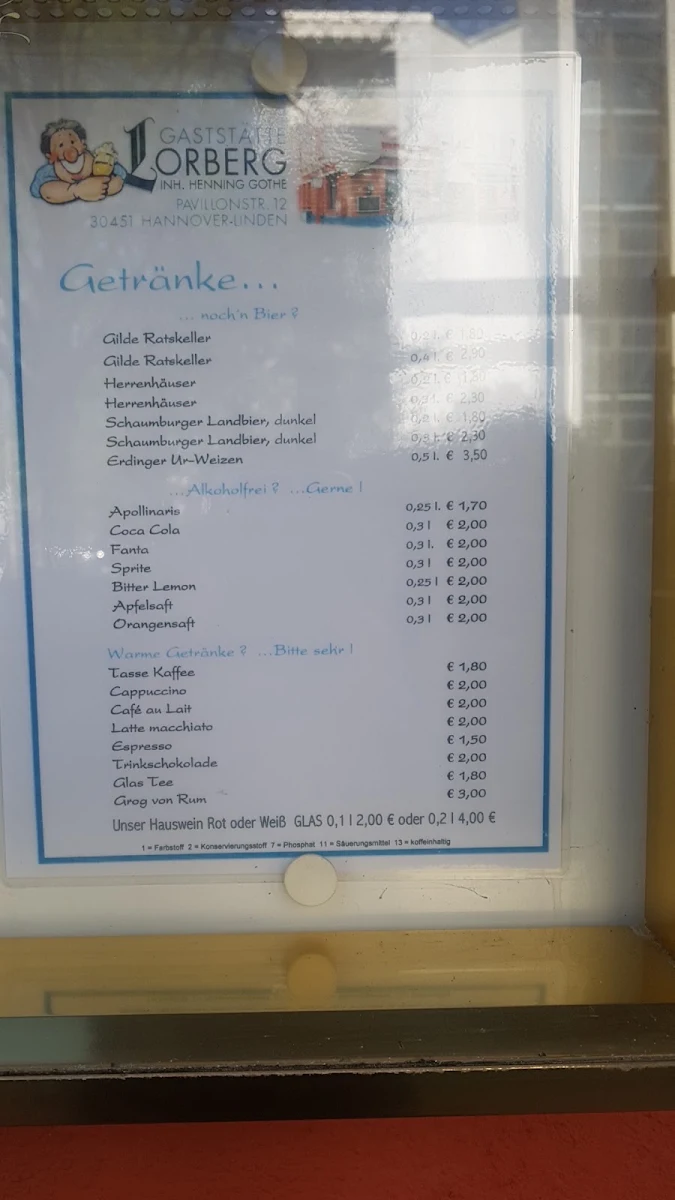 GASTSTÄTTE
LORBERG
INH. HENNING GOTHE
PAVILLONSTR. 12
30451 HANNOVER-LINDEN
Getränke...
... noch'n Bier ?
Gilde Ratskeller 0,2 l. € 1,80
Gilde Ratskeller 0,4 l. € 2,90
Herrenhäuser
Herrenhäuser € 2,30
Schaumburger Landbier, dunkel € 1,80
Schaumburger Landbier, dunkel € 2,30
Erdinger Ur-Weizen 0,5 l. € 3,50
...Alkoholfrei ? ...Gerne !
Apollinaris 0,25 l. € 1,70
Coca Cola 0,3 l € 2,00
Fanta 0,3 l. € 2,00
Sprite 0,3 l € 2,00
Bitter Lemon 0,25 l € 2,00
Apfelsaft 0,3 l € 2,00
Orangensaft 0,3 l € 2,00
Warme Getränke ? ...Bitte sehr !
Tasse Kaffee € 1,80
Cappuccino € 2,00
Café au Lait € 2,00
Latte macchiato € 2,00
Espresso € 1,50
Trinkschokolade € 2,00
Glas Tee € 1,80
Grog von Rum € 3,00
Unser Hauswein Rot oder Weiß GLAS 0,1 l 2,00 € oder 0,2 l 4,00 €
1 = Farbstoff 2 = Konservierungsstoff 7 = Phosphat 11 = Säuerungsmittel 13 = koffeinhaltig